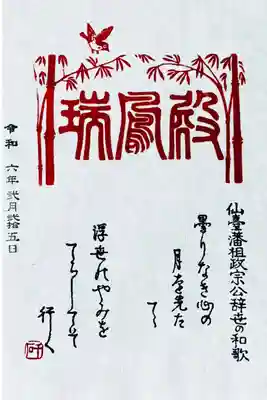 瑞鳳殿
仙臺藩祖政宗公辞世の和歌
曇りなき心の
月を先た
てゝ
浮世のやみを
てらしてそ
行く
令和 六年 弐月弐拾五日